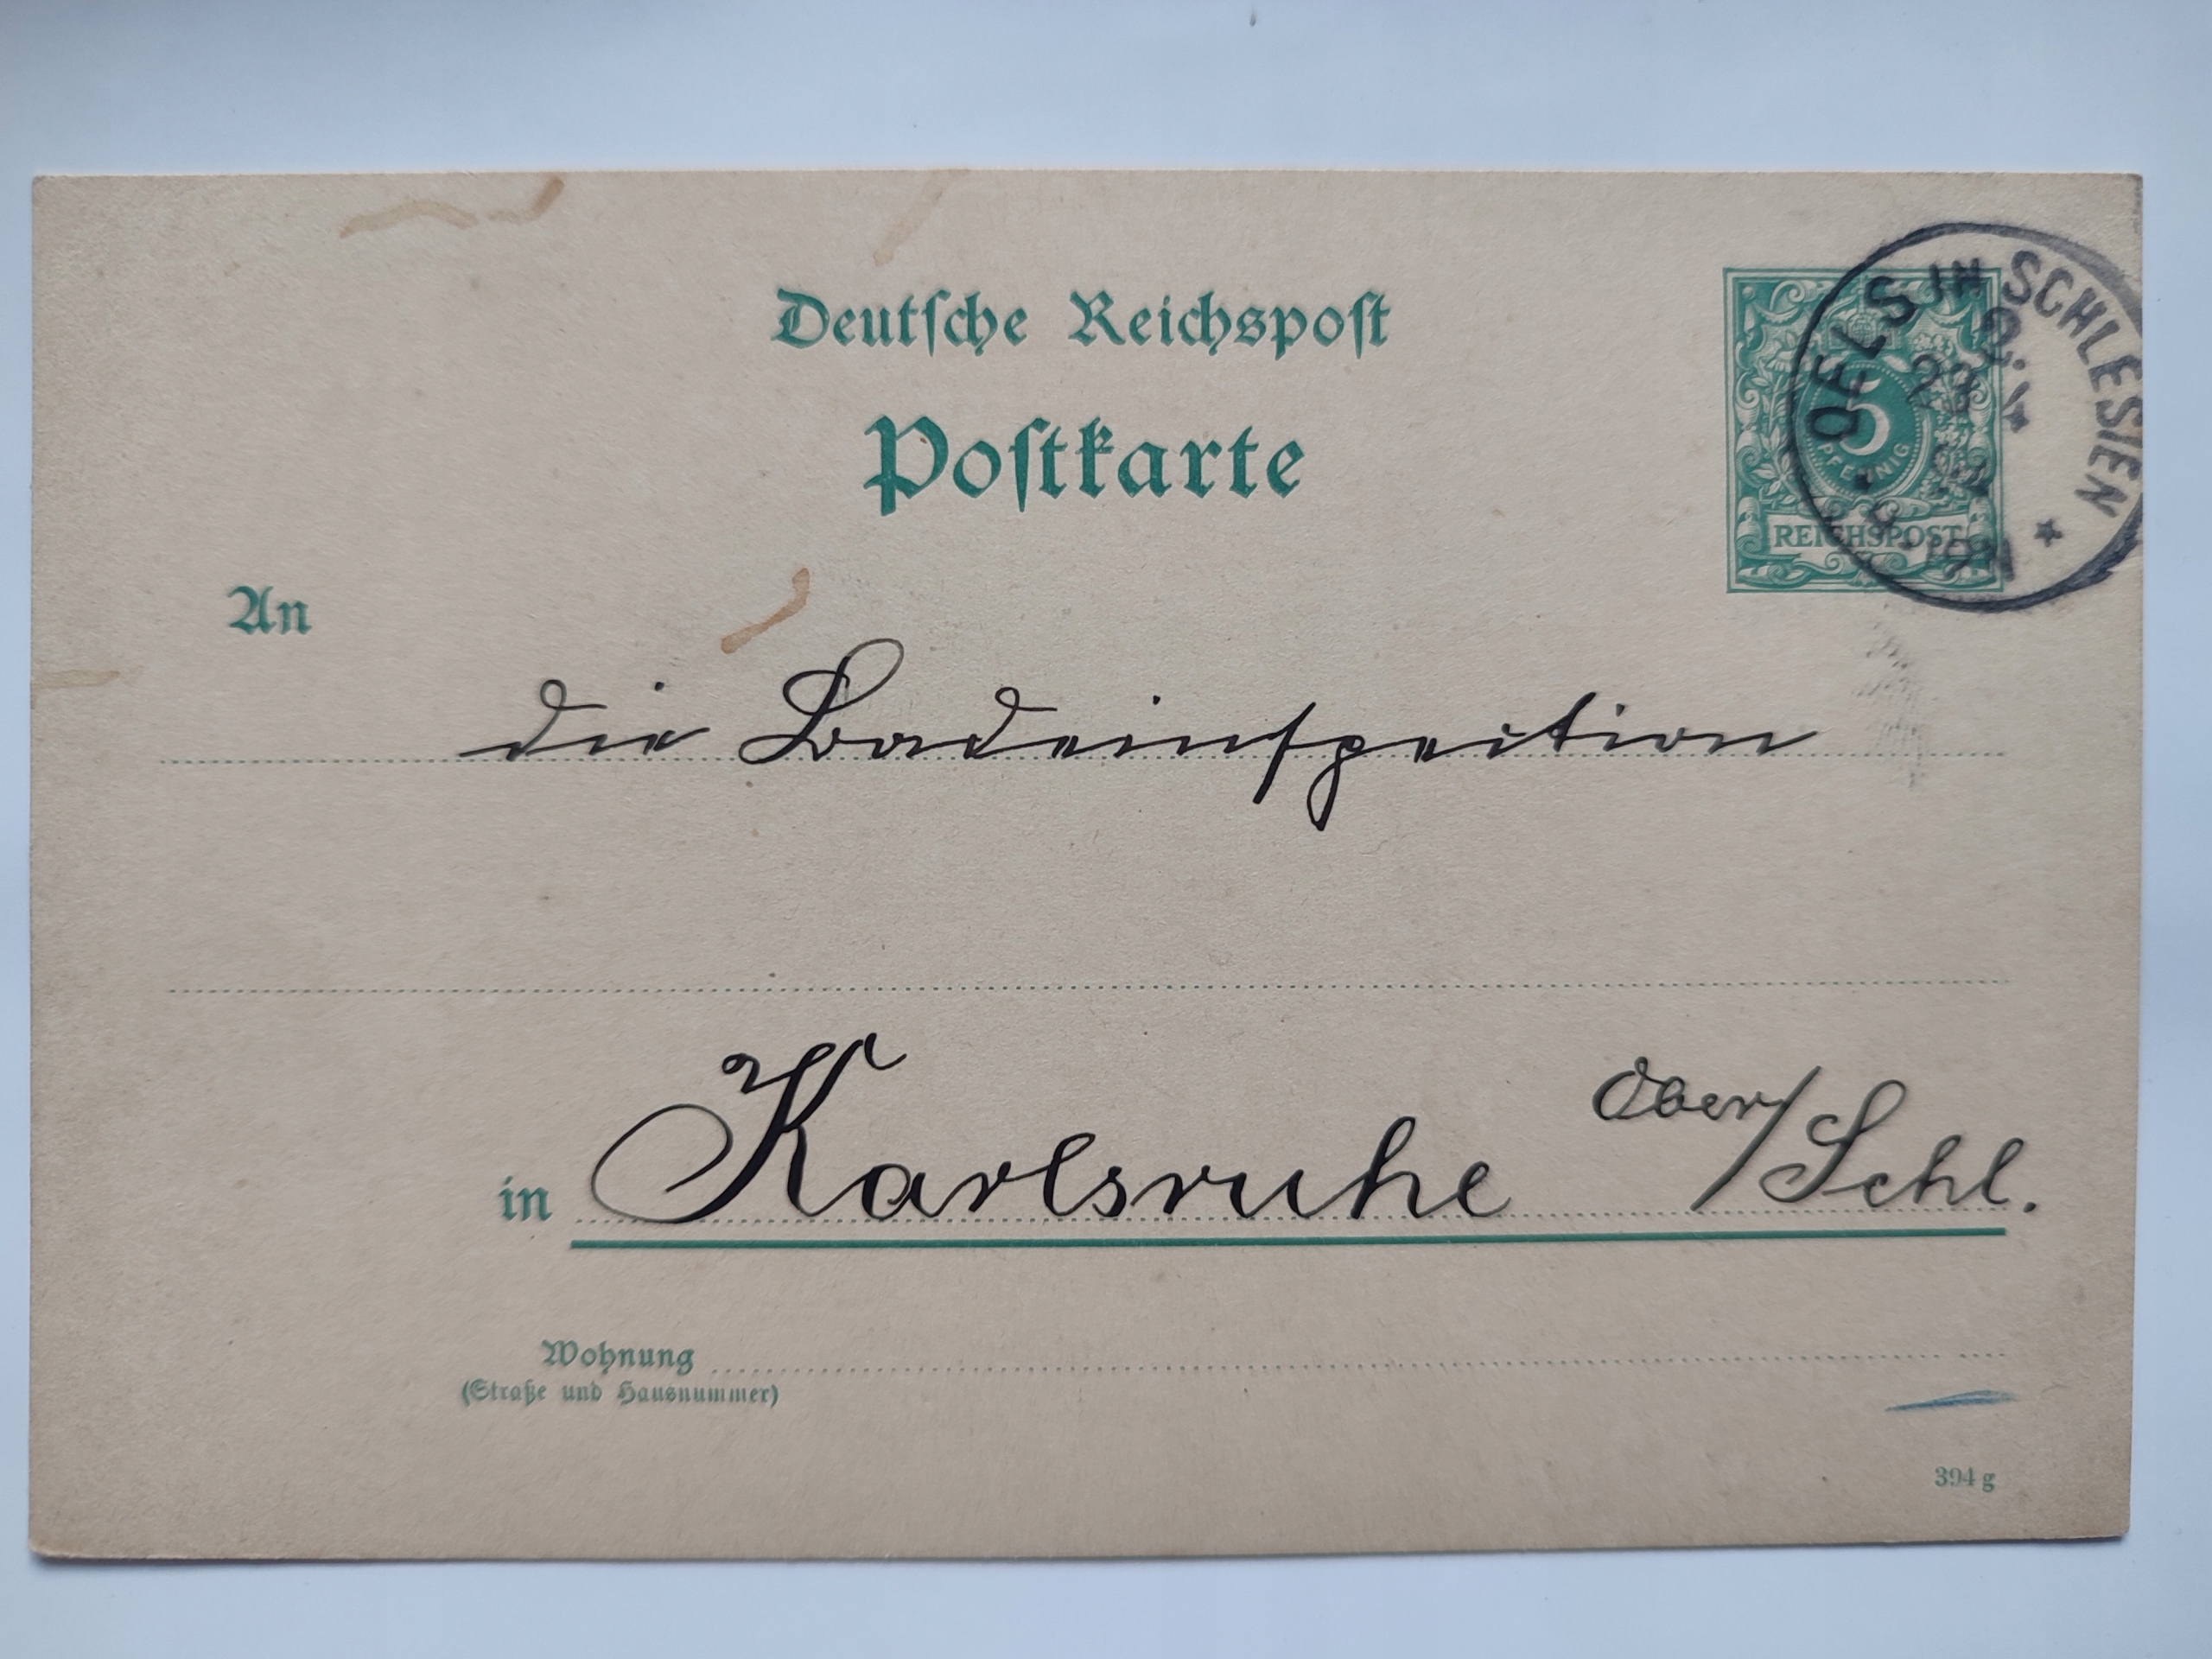 Deutsche Reichspost
OELS IN SCHLESIEN
Postkarte
5
PFENNIG
REICHSPOST
An
die Badeinspection
in Karlsruhe Ober/Schl.
Wohnung
(Straße und Hausnummer)
394 g